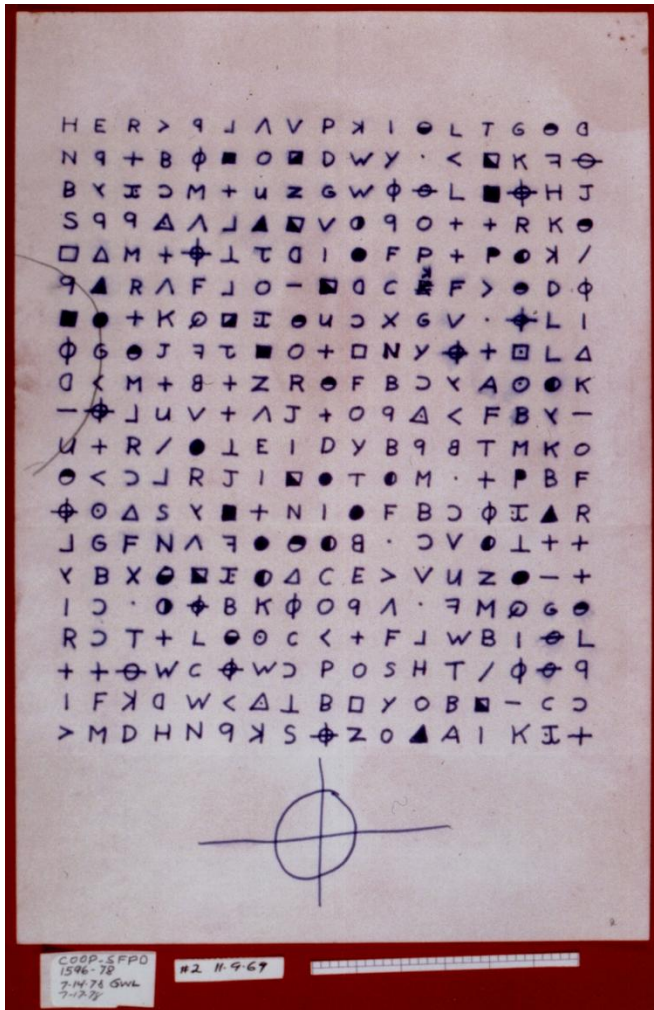 H E R > ꟼ ⅃ Λ V P ꓘ I ◒ L T G ◓ ᗡ
N ꟼ + B ϕ ■ O ◪ D W Y · < ⬕ K ꟻ ⊖
B ⅄ ⌶ Ɔ M + U Z G W ϕ ⊖ L ■ ⌖ H J
S ꟼ ꟼ ◬ Λ ⅃ ▲ ⬕ V ◑ ꟼ O + + R K ◓
□ △ M + ⌖ ⊥ τ ᗡ I ● F P + P ◐ ꓘ /
ꟼ ▲ R Λ F ⅃ O − ⬕ ᗡ C ꓘ F > ◓ D ϕ
■ ● + K ∅ ◪ ⌶ ◓ U Ɔ X G V · ⌖ L I
ϕ G ◓ J ꟻ τ ■ O + □ N Y ⌖ + ⊡ L △
ᗡ < M + 8 + Z R ◓ F B Ɔ ⅄ A ⊙ ◐ K
− ⌖ ⅃ U V + Λ J + O ꟼ ◬ < F B ⅄ −
U + R / ● ⊥ E I D Y B ꟼ 8 T M K O
◓ < Ɔ ⅃ R J I ⬕ ● T ◐ M · + P B F
⌖ ⊙ △ S ⅄ ■ + N I ● F B Ɔ ϕ ⌶ ▲ R
⅃ G F N Λ ꟻ ● ◓ ◐ 8 · Ɔ V ◐ ⊥ + +
⅄ B X ◒ ⬕ ⌶ ◐ △ C E > V U Z ● − +
I Ɔ · ◑ ⌖ B K ϕ O ꟼ Λ · ꟻ M ∅ G ◓
R Ɔ T + L ◒ ⊙ C < + F ⅃ W B I ⊖ L
+ + ⊖ W C ⌖ W Ɔ P O S H T / ϕ ⊖ ꟼ
I F ꓘ ᗡ W < ◬ ⊥ B □ Y O B ⬕ − C Ɔ
> M D H N ꟼ ꓘ S ⌖ Z O ▲ A I K ⌶ +
COOP-SFPD
1596-78
7-14-78 GWL
7-17-78
#2 11-9-69